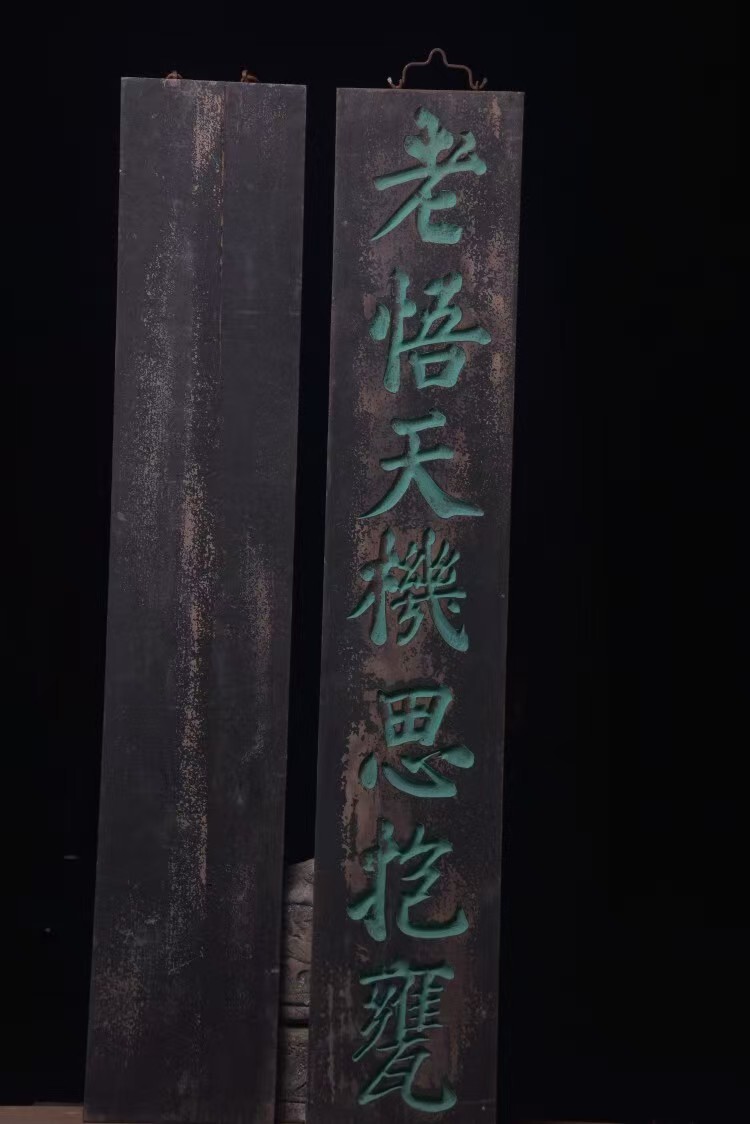 老悟天機思抱甕